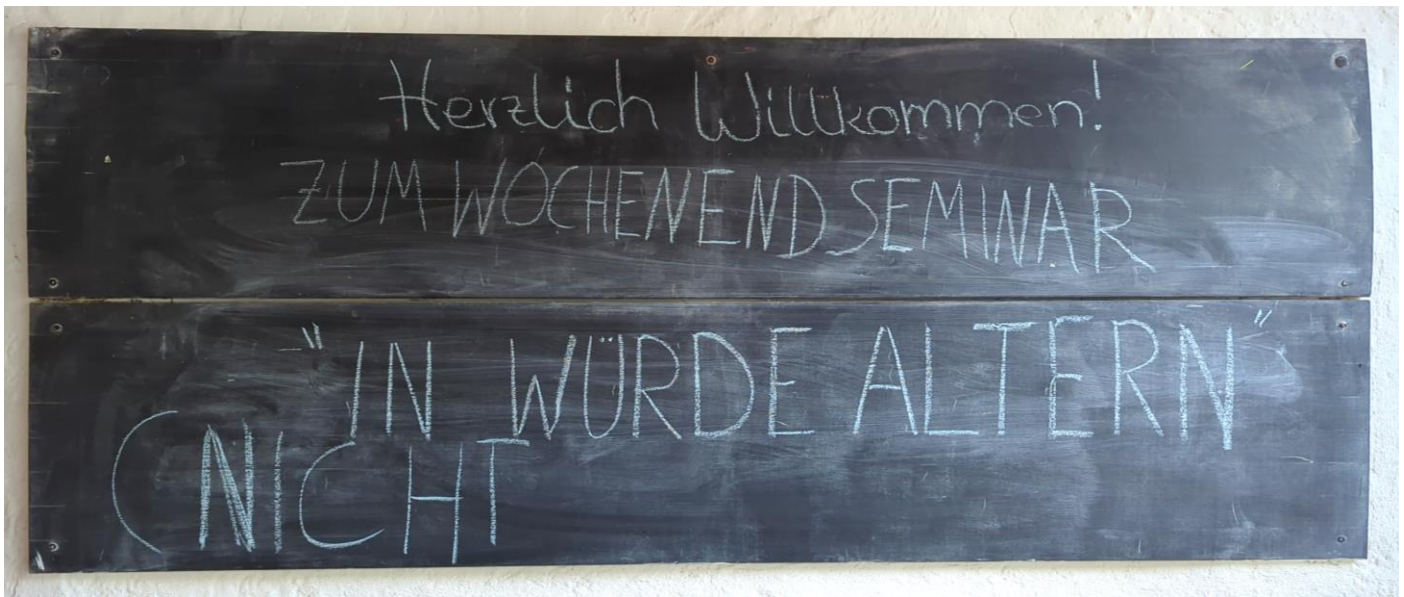 Herzlich Willkommen!
ZUM WOCHENENDSEMINAR
"IN WÜRDE ALTERN"
(NICHT